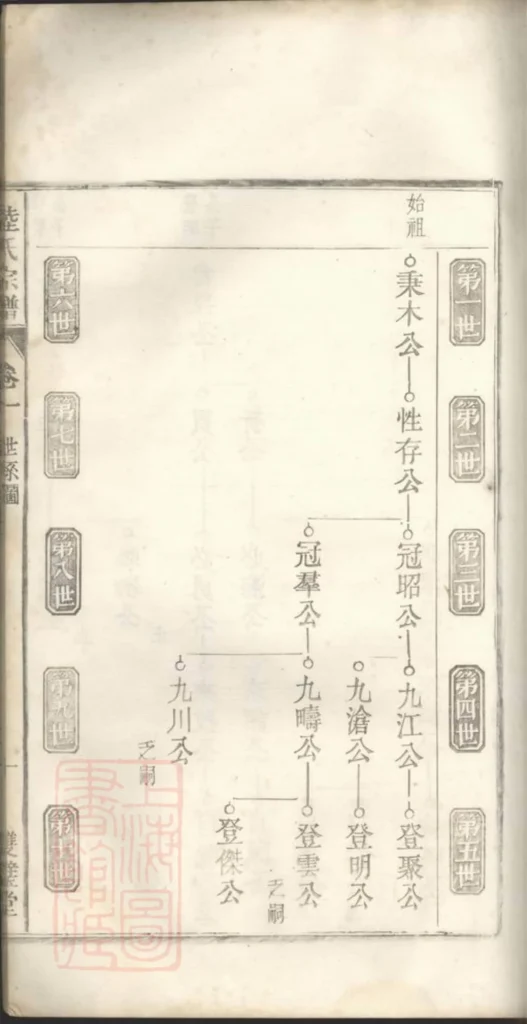 始祖
第一世
第二世
第三世
第四世
第五世
秉木公
性存公
冠昭公
九江公
登聚公
九滄公
登明公
冠羣公
九疇公
登雲公
乏嗣
登傑公
九川公
乏嗣
第六世
第七世
第八世
第九世
第十世
陸氏宗譜
卷一
世系圖
一
上海圖書館藏